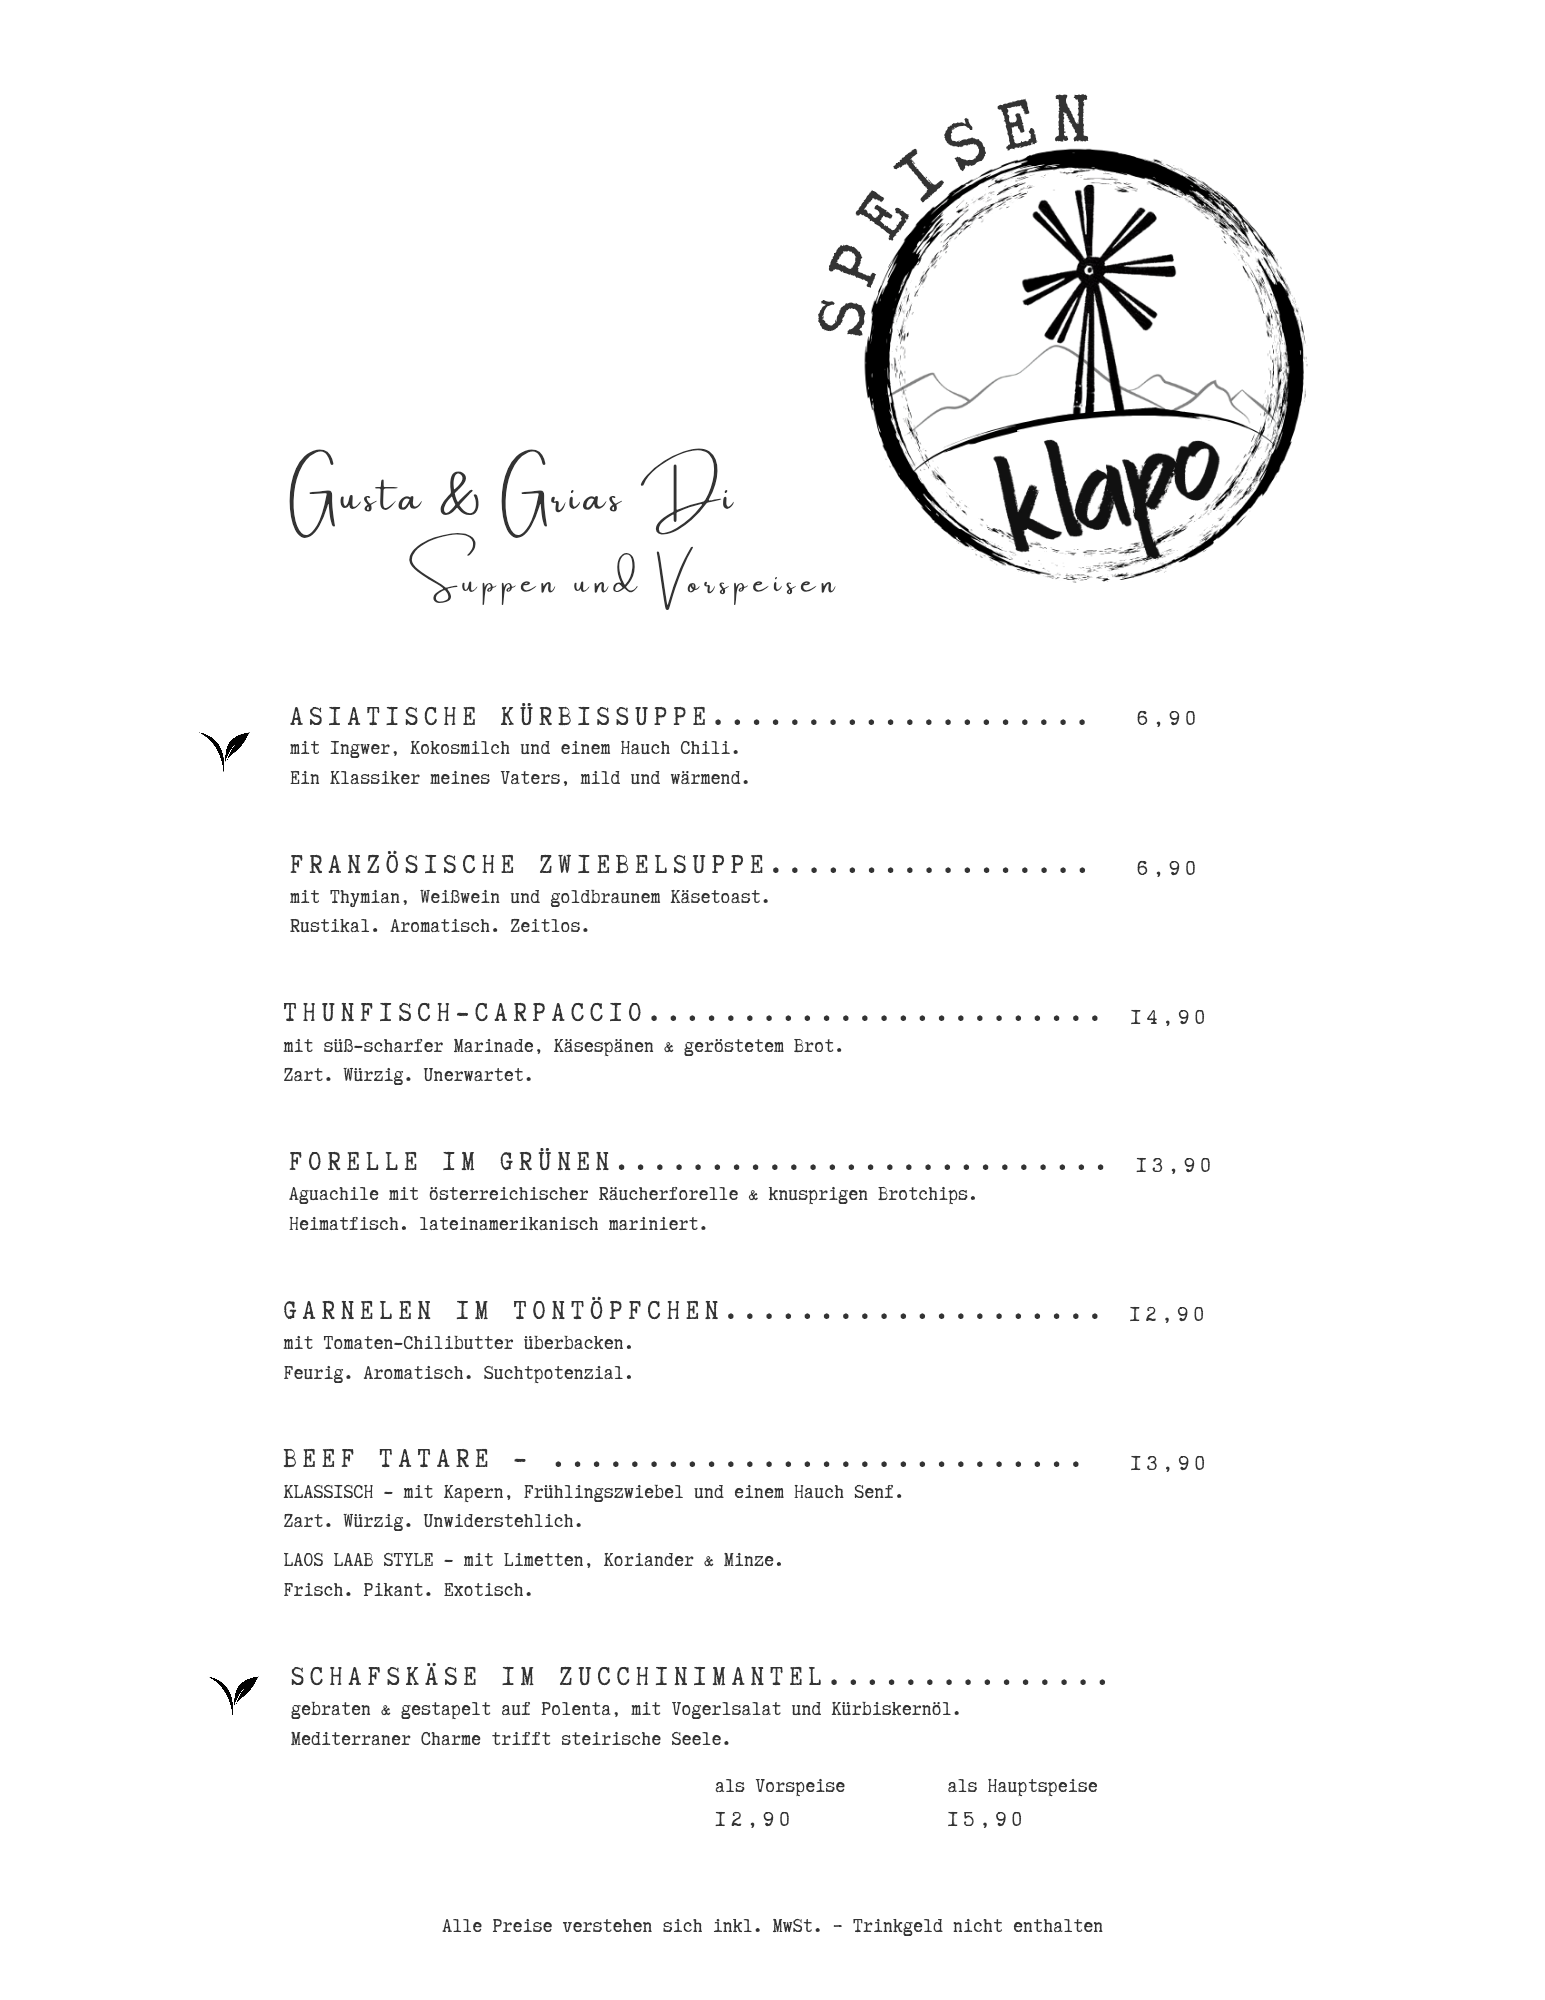 SPEISEN
klapo
Gusta & Grias Di
Suppen und Vorspeisen
ASIATISCHE KÜRBISSUPPE.................... 6,90
mit Ingwer, Kokosmilch und einem Hauch Chili.
Ein Klassiker meines Vaters, mild und wärmend.
FRANZÖSISCHE ZWIEBELSUPPE................. 6,90
mit Thymian, Weißwein und goldbraunem Käsetoast.
Rustikal. Aromatisch. Zeitlos.
THUNFISCH-CARPACCIO........................ 14,90
mit süß-scharfer Marinade, Käsespänen & geröstetem Brot.
Zart. Würzig. Unerwartet.
FORELLE IM GRÜNEN.......................... 13,90
Aguachile mit österreichischer Räucherforelle & knusprigen Brotchips.
Heimatfisch. lateinamerikanisch mariniert.
GARNELEN IM TONTÖPFCHEN.................... 12,90
mit Tomaten-Chilibutter überbacken.
Feurig. Aromatisch. Suchtpotenzial.
BEEF TATARE - ............................ 13,90
KLASSISCH - mit Kapern, Frühlingszwiebel und einem Hauch Senf.
Zart. Würzig. Unwiderstehlich.
LAOS LAAB STYLE - mit Limetten, Koriander & Minze.
Frisch. Pikant. Exotisch.
SCHAFSKÄSE IM ZUCCHINIMANTEL...............
gebraten & gestapelt auf Polenta, mit Vogerlsalat und Kürbiskernöl.
Mediterraner Charme trifft steirische Seele.
als Vorspeise als Hauptspeise
12,90 15,90
Alle Preise verstehen sich inkl. MwSt. - Trinkgeld nicht enthalten